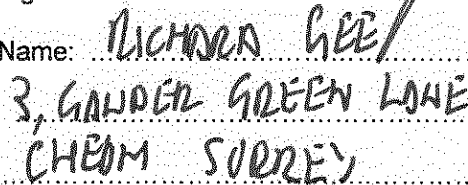 Name: RICHARD GEE/
3, GANDER GREEN LANE
CHEAM SURREY